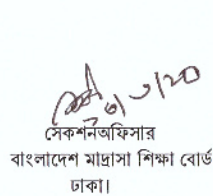 সেকশনঅফিসার
বাংলাদেশ মাদ্রাসা শিক্ষা বোর্ড
ঢাকা।